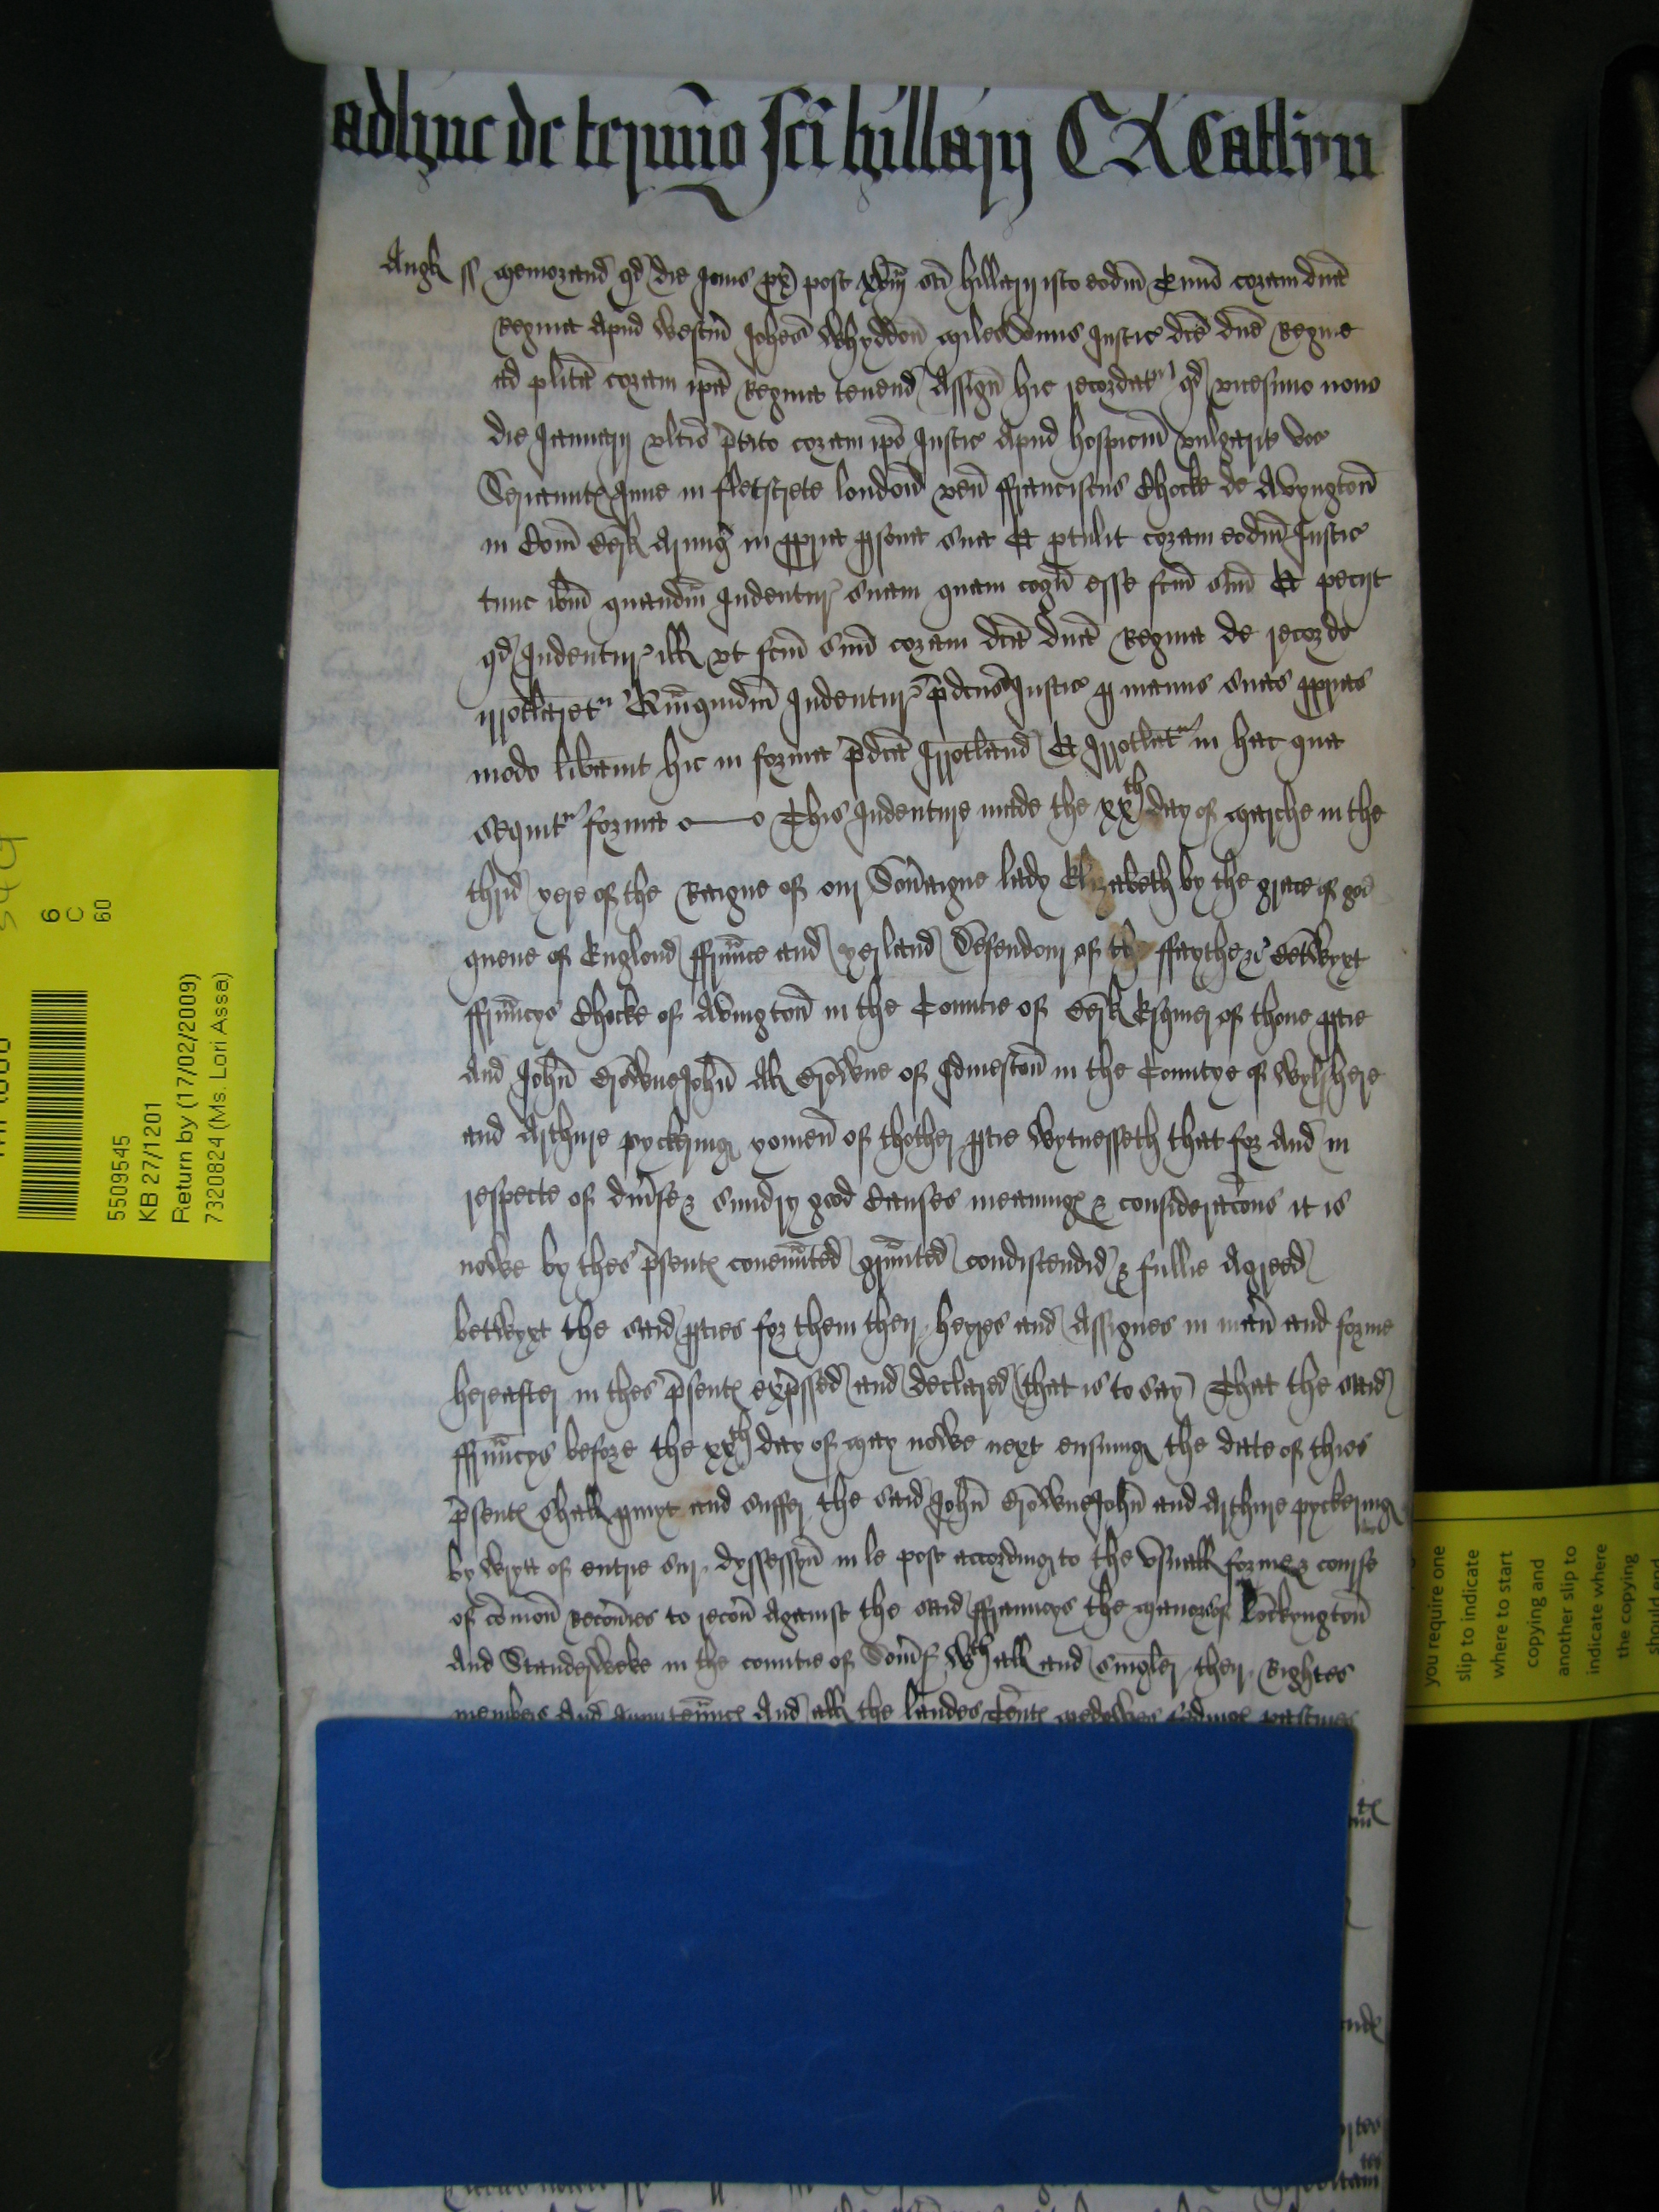 adhuc de termino sci hillarij C R Catlyn
Angł ss Memorand qd die Jovis px post xvam sci hillarij isto eodm Tmino coram dna
Regina apud Westm Johes Whyddon miles unus Justic dce dne Regine
ad plita coram ipa Regina tenend Assign hic recordatr qd vicesimo nono
die Januarij ultio ptito coram ipo Justic apud hospicm vulgarit voc
Serjaunts Inne in fletstrete london ven ffranciscus Choke de Avyngton
in Com Berk Armig in ppria psona sua Et ptulit coram eodm Justic
tunc ibm quandm Indentur suam quam cogn esse fcm suu Et petijt
qd Indentur ill ut fcm suu coram dca dna Regina de recorde
irrotlaretr Quamquidm Indentur pdcus Justic p manus suas pprias
modo libavit hic in forma pdca Irrotland Et Irrotlatr in hac qua
sequitr forma o—o This Indenture made the xxth day of Marche in the
thrid yere of the Raigne of our Sovaigne lady Elizabeth by the grace of god
quene of England ffraunce and yerland Defendour of the ffaythe &c Betwyxt
ffrauncys Choke of Avington in the Countie of Berk Esquier of thone ptie
And John BrowneJohn Al Browne of Idmeston in the Countye of Wylshere
and Arthure pyckering yomen of thother ptie Wytnesseth that for And in
respecte of divse & sundry good Causes meaning & consideracons it is
nowe by thes psents covenunted graunted condiscendid & fullie Agreed
betwyxt the said pties for them their heyres and Assignes in man and forme
hereafter in thes psents expssed and declared (that is to say) That the said
ffrauncys before the xxth day of May nowe next ensuing the date of thies
psents shall pmyt and suffer the said John BrowneJohn and Arthure pyckering
by wrytt of entrie sur dyssessyn in le post according to the usuall forme & course
of comon Recovies to recov Against the said ffrauncys the Manors of Lockyngton
And Standerweke in the countie of Soms wth all and singler their Rightes
members And Appurtennces And all the landes Tents medowes feding pastures
5509545
KB 27/1201
Return by (17/02/2009)
7320824 (Ms. Lori Assa)
6
C
60
you require one
slip to indicate
where to start
copying and
another slip to
indicate where
the copying
should end